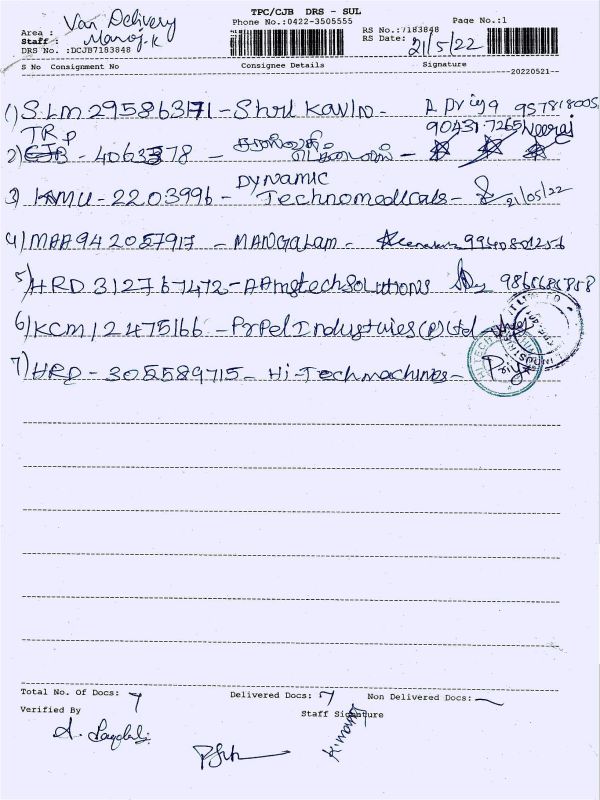 TPC/CJB DRS - SUL
Van Delivery
Phone No.:0422-3505555
Page No.:1
Area :
RS No.:7183848
Staff : Manoj.K
RS Date: 21/5/22
DRS No. :DCJB7183848
S No Consignment No Consignee Details Signature
20220521
1) SLM295863171 - Shri Kavin - A Priya 9578180051
TRP 90431 7265 Neeraj
2) CJB - 4063378 -
DYNAMIC
3) KMU - 2203996 - Technomedicals - 21/05/22
4) MAA942057917 - MANGALAM -
5) HRD 312767472 - AAmstechSolutions 9865685858
6) KCM12475166 - PrPel Industries (P) Ltd
7) HRD - 305589715 - Hi-Techmachines - Priya
Total No. Of Docs: 7 Delivered Docs: 7 Non Delivered Docs: —
Verified By Staff Signature